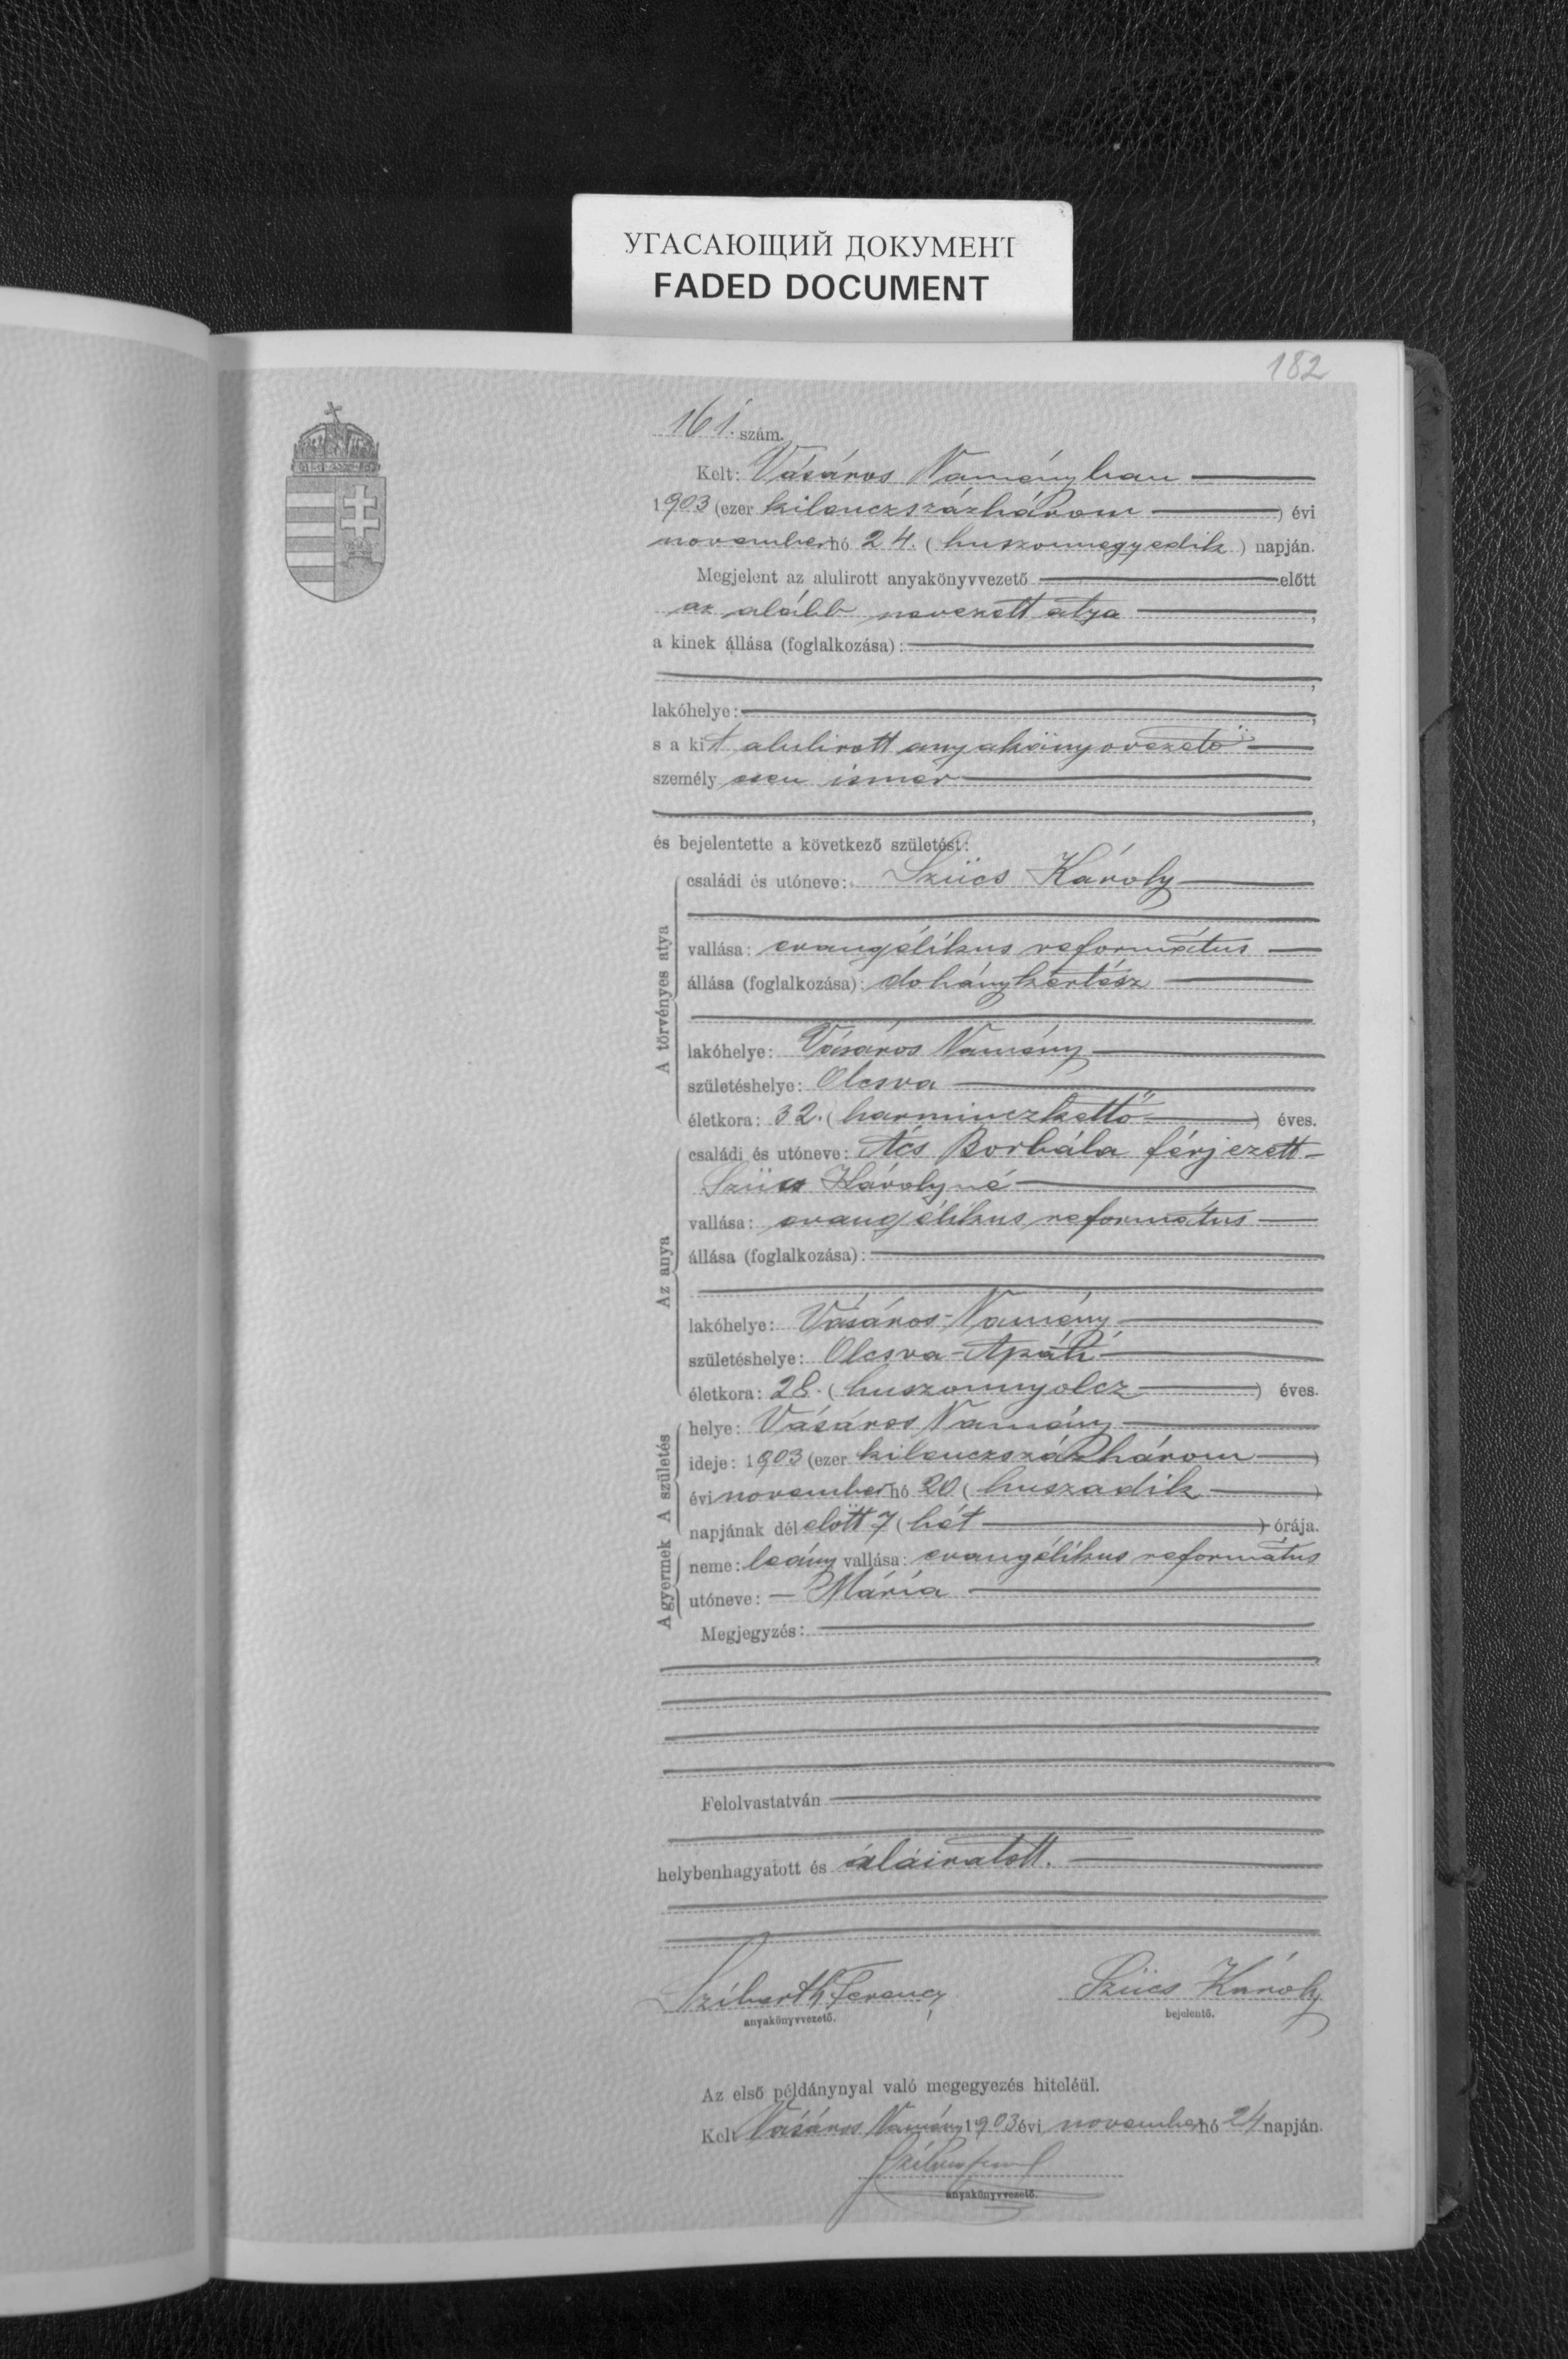 УГАСАЮЩИЙ ДОКУМЕНТ
FADED DOCUMENT
182
161. szám.
Kelt: Vásáros Naményban
1903 (ezer kilenczszázhárom ) évi
november hó 24. ( huszonnegyedik ) napján.
Megjelent az alulirott anyakönyvvezető előtt
az alább nevezett atya ,
a kinek állása (foglalkozása):
,
lakóhelye: ,
s a kit alulirott anyakönyvvezető
személyesen ismer
,
és bejelentette a következő születést:
A törvényes atya
családi és utóneve: Szücs Károly
vallása: evangélikus református
állása (foglalkozása): dohánykertész
lakóhelye: Vásáros Namény
születéshelye: Olcsva
életkora: 32. ( harminczkettő ) éves.
Az anya
családi és utóneve: Ács Borbála férjezett
Szücs Károlyné
vallása: evangélikus református
állása (foglalkozása):
lakóhelye: Vásáros-Namény
születéshelye: Olcsva-Apáti
életkora: 28. ( huszonnyolcz ) éves.
A születés
helye: Vásáros Namény
ideje: 1903 (ezer kilenczszázhárom )
évi november hó 20 ( huszadik )
napjának délelőtt 7 ( hét ) órája.
A gyermek
neme: leány vallása: evangélikus református
utóneve: — Mária
Megjegyzés:
Felolvastatván
helybenhagyatott és aláiratott.
Ferencz Szücs Károly
anyakönyvvezető. bejelentő.
Az első példánynyal való megegyezés hiteléül.
Kelt Vásáros Namény 1903 évi november hó 24 napján.
anyakönyvvezető.